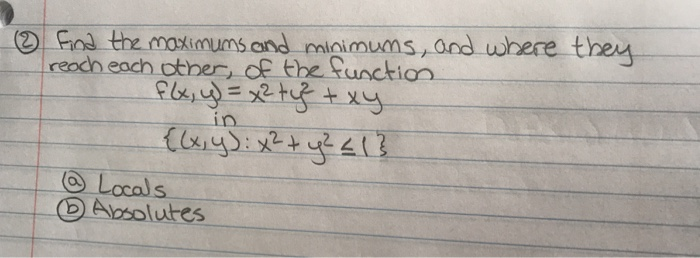 ② Find the maximums and minimums, and where they
reach each other, of the function
f(x,y) = x² + y² + xy
in
{(x,y): x² + y² ≤ 1}
ⓐ Locals
ⓑ Absolutes